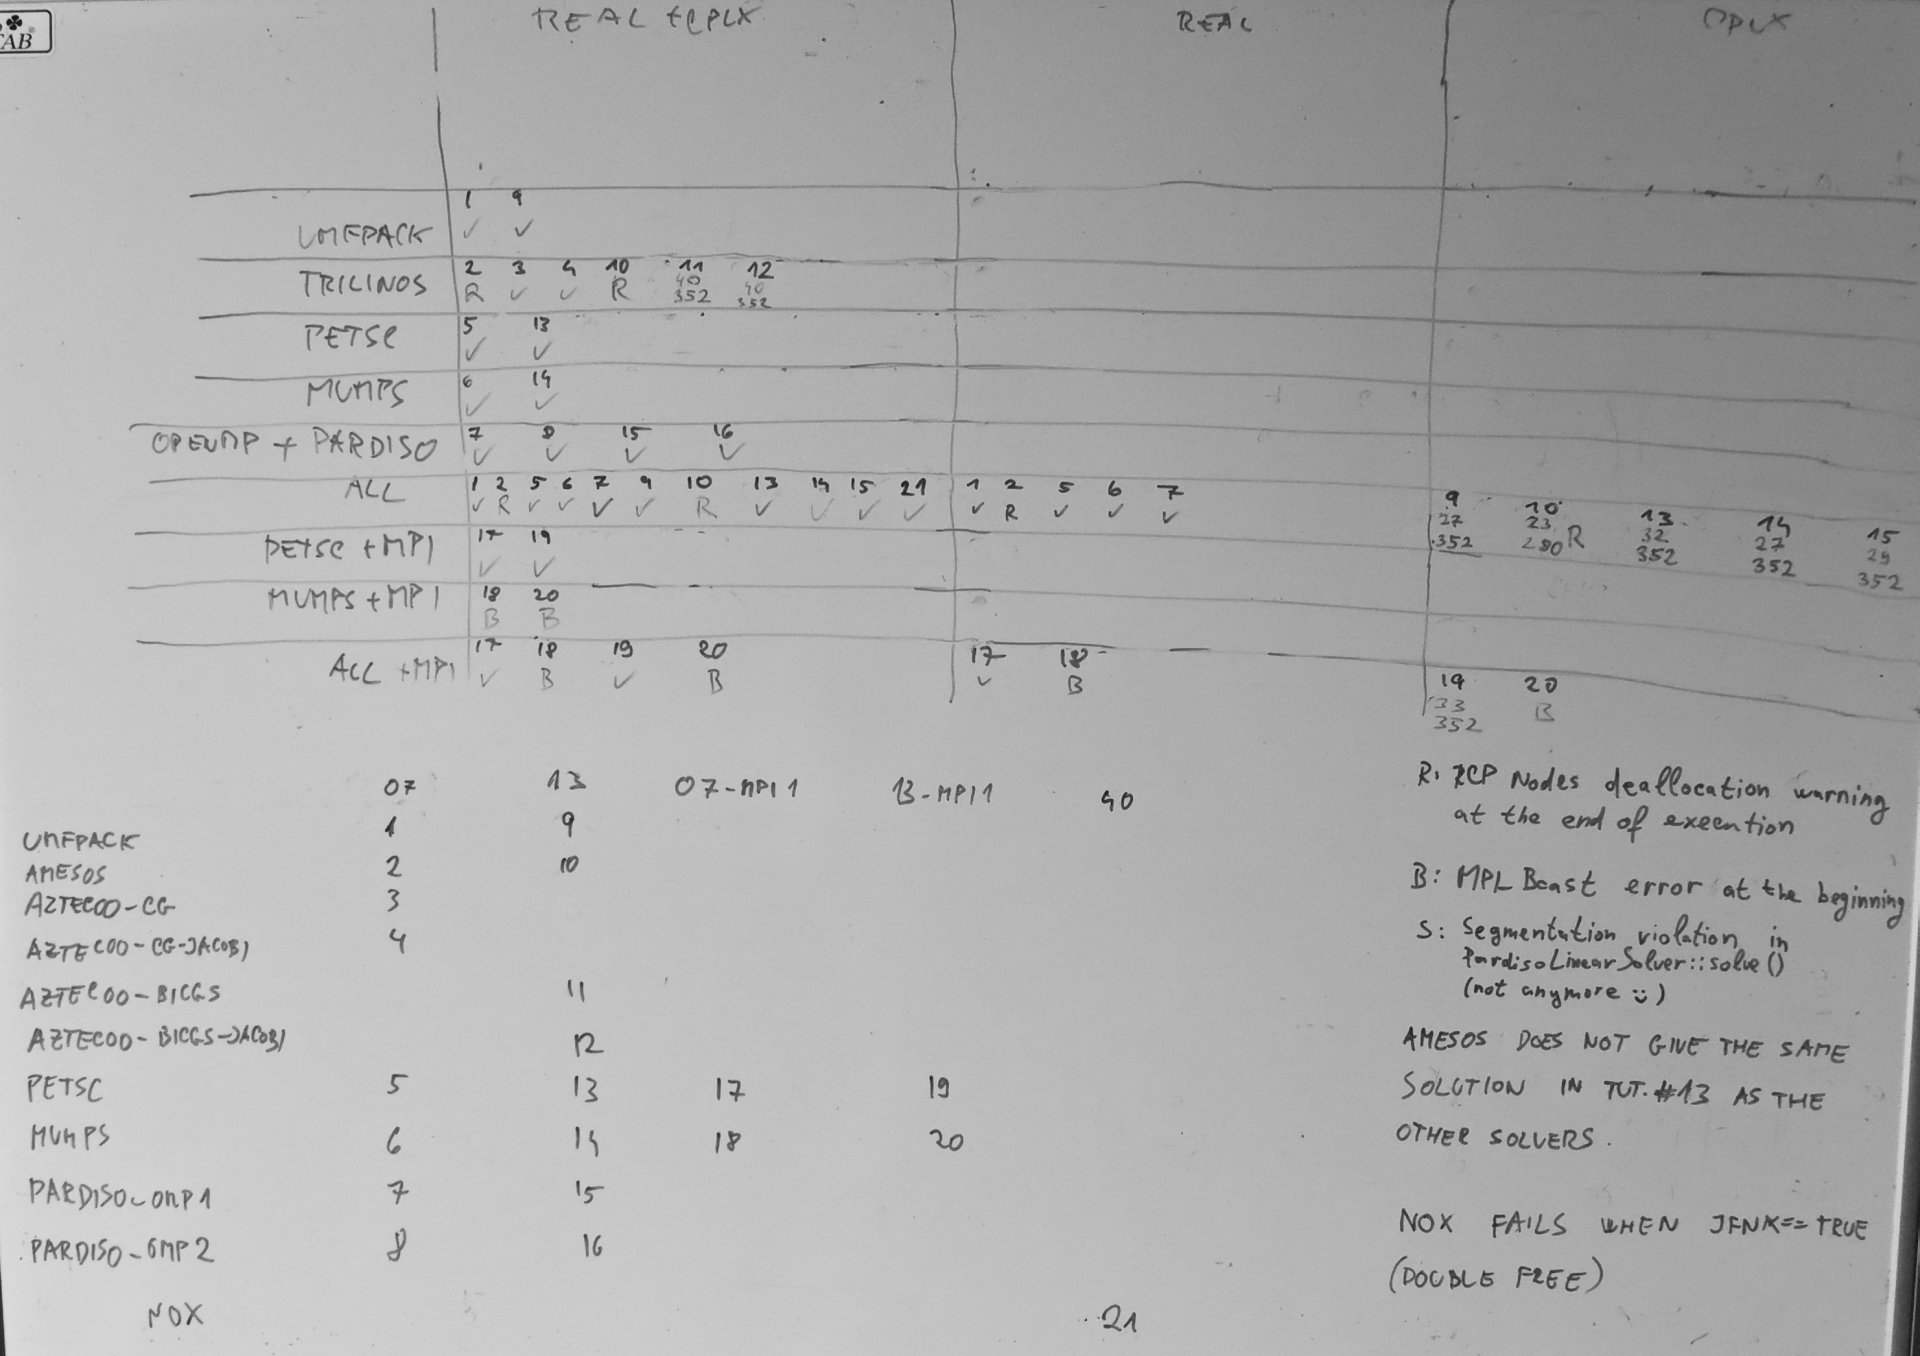 TAB
REAL + CPLX REAL CPLX
1 9
UMFPACK ✓ ✓
2 3 4 10 11 12
TRILINOS R ✓ ✓ R 40 40
352 352
5 13
PETSC ✓ ✓
6 14
MUMPS ✓ ✓
7 8 15 16
OPENMP + PARDISO ✓ ✓ ✓ ✓
ALL 1 2 5 6 7 9 10 13 14 15 21 1 2 5 6 7 9 10 13 14 15
✓ R ✓ ✓ ✓ ✓ R ✓ ✓ ✓ ✓ ✓ R ✓ ✓ ✓ 27 23 R 32 27 29
352 280 352 352 352
17 19
PETSC + MPI ✓ ✓
MUMPS + MPI 18 20
B B
17 18 19 20 17 18 19 20
ALL + MPI ✓ B ✓ B ✓ B 33 B
352
07 13 07-MPI1 13-MPI1 40
UMFPACK 1 9
AMESOS 2 10
AZTECOO-CG 3
AZTECOO-CG-JACOBI 4
AZTECOO-BICGS 11
AZTECOO-BICGS-JACOBI 12
PETSC 5 13 17 19
MUMPS 6 14 18 20
PARDISO-OMP1 7 15
PARDISO-OMP2 8 16
NOX 21
R: RCP Nodes deallocation warning
at the end of execution
B: MPI_Bcast error at the beginning
S: Segmentation violation in
PardisoLinearSolver::solve()
(not anymore :))
AMESOS DOES NOT GIVE THE SAME
SOLUTION IN TUT. #13 AS THE
OTHER SOLVERS.
NOX FAILS WHEN JFNK==TRUE
(DOUBLE FREE)